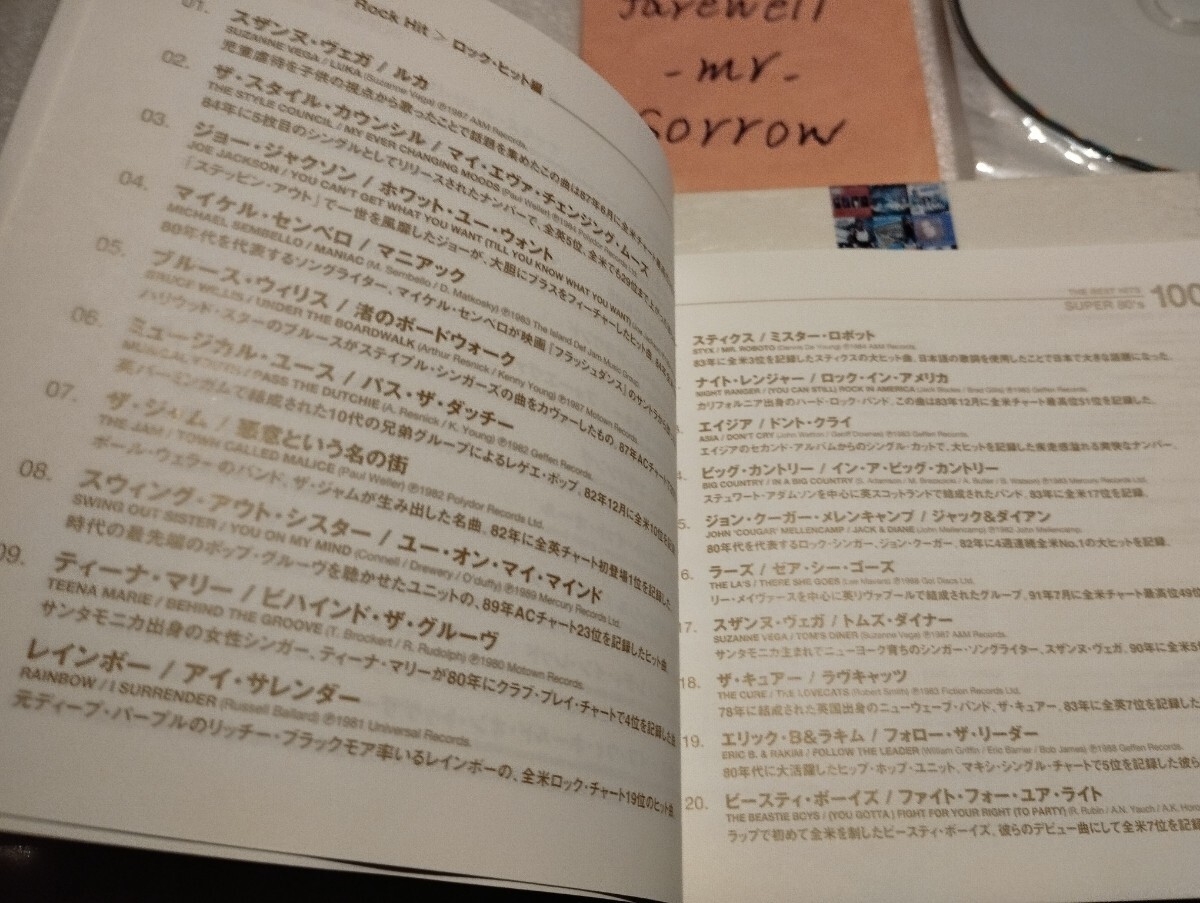 Rock Hit > ロック・ヒット編
01.
スザンヌ・ヴェガ / ルカ
SUZANNE VEGA / LUKA (Suzanne Vega) ℗1987 A&M Records.
児童虐待を子供の視点から歌ったことで話題を集めたこの曲は87年6月に全米チャート
02.
ザ・スタイル・カウンシル / マイ・エヴァ・チェンジング・ムーズ
THE STYLE COUNCIL / MY EVER CHANGING MOODS (Paul Weller) ℗1984 Polydor Records Ltd.
84年に5枚目のシングルとしてリリースされたナンバーで、全英5位、全米でも29位まで上
03.
ジョー・ジャクソン / ホワット・ユー・ウォント
JOE JACKSON / YOU CAN'T GET WHAT YOU WANT (TILL YOU KNOW WHAT YOU WANT)
「ステッピン・アウト」で一世を風靡したジョーが、大胆にブラスをフィーチャーしたヒット曲。84年
04.
マイケル・センベロ / マニアック
MICHAEL SEMBELLO / MANIAC (M. Sembello / D. Matkosky) ℗1983 The Island Def Jam Music Group.
80年代を代表するソングライター、マイケル・センベロが映画『フラッシュダンス』のサントラから
05.
ブルース・ウィリス / 渚のボードウォーク
BRUCE WILLIS / UNDER THE BOARDWALK (Arthur Resnick / Kenny Young) ℗1987 Motown Records.
ハリウッド・スターのブルースがステイプル・シンガーズの曲をカヴァーしたもの。87年ACチャート
06.
ミュージカル・ユース / パス・ザ・ダッチー
MUSICAL YOUTH / PASS THE DUTCHIE (A. Resnick / K. Young) ℗1982 Geffen Records.
英バーミンガムで結成された10代の兄弟グループによるレゲエ・ポップ。82年12月に全米10位を記録
07.
ザ・ジャム / 悪意という名の街
THE JAM / TOWN CALLED MALICE (Paul Weller) ℗1982 Polydor Records Ltd.
ポール・ウェラーのバンド、ザ・ジャムが生み出した名曲。82年に全英チャート初登場1位を記録した
08.
スウィング・アウト・シスター / ユー・オン・マイ・マインド
SWING OUT SISTER / YOU ON MY MIND (Connell / Drewery / O'duffy) ℗1989 Mercury Records.
時代の最先端のポップ・グルーヴを聴かせたユニットの、89年ACチャート23位を記録したヒット曲
09.
ティーナ・マリー / ビハインド・ザ・グルーヴ
TEENA MARIE / BEHIND THE GROOVE (T. Brockert / R. Rudolph) ℗1980 Motown Records.
サンタモニカ出身の女性シンガー、ティーナ・マリーが80年にクラブ・プレイ・チャートで4位を記録した
レインボー / アイ・サレンダー
RAINBOW / I SURRENDER (Russell Ballard) ℗1981 Universal Records.
元ディープ・パープルのリッチー・ブラックモア率いるレインボーの、全米ロック・チャート19位のヒット曲
farewell
-mr-
Sorrow
THE BEST HITS
SUPER 80's 100
スティクス / ミスター・ロボット
STYX / MR. ROBOTO (Dennis De Young) ℗1984 A&M Records.
83年に全米3位を記録したスティクスの大ヒット曲。日本語の歌詞を使用したことで日本で大きな話題になった。
ナイト・レンジャー / ロック・イン・アメリカ
NIGHT RANGER / (YOU CAN STILL) ROCK IN AMERICA ℗1983 Geffen Records.
カリフォルニア出身のハード・ロック・バンド。この曲は83年12月に全米チャート最高位51位を記録した。
エイジア / ドント・クライ
ASIA / DON'T CRY (John Wetton / Geoff Downes) ℗1983 Geffen Records.
エイジアのセカンド・アルバムからのシングル・カットで、大ヒットを記録した疾走感溢れる爽快なナンバー。
ビッグ・カントリー / イン・ア・ビッグ・カントリー
BIG COUNTRY / IN A BIG COUNTRY (S. Adamson / M. Brzezicki / A. Butler / B. Watson) ℗1983 Mercury Records Ltd.
ステュワート・アダムソンを中心に英スコットランドで結成されたバンド。83年に全米17位を記録。
5. ジョン・クーガー・メレンキャンプ / ジャック&ダイアン
JOHN 'COUGAR' MELLENCAMP / JACK & DIANE (John Mellencamp) ℗1982 John Mellencamp.
80年代を代表するロック・シンガー、ジョン・クーガー。82年に4週連続全米No.1の大ヒットを記録。
6. ラーズ / ゼア・シー・ゴーズ
THE LA'S / THERE SHE GOES (Lee Mavers) ℗1988 Go! Discs Ltd.
リー・メイヴァースを中心に英リヴァプールで結成されたグループ。91年7月に全米チャート最高位49位
17. スザンヌ・ヴェガ / トムズ・ダイナー
SUZANNE VEGA / TOM'S DINER (Suzanne Vega) ℗1987 A&M Records.
サンタモニカ生まれでニューヨーク育ちのシンガー・ソングライター、スザンヌ・ヴェガ。90年に全米5
18. ザ・キュアー / ラヴキャッツ
THE CURE / THE LOVECATS (Robert Smith) ℗1983 Fiction Records Ltd.
78年に結成された英国出身のニューウェーブ・バンド、ザ・キュアー。83年に全英7位を記録した
19. エリック・B&ラキム / フォロー・ザ・リーダー
ERIC B. & RAKIM / FOLLOW THE LEADER (William Griffin / Eric Barrier / Bob James) ℗1988 Geffen Records.
80年代に大活躍したヒップ・ホップ・ユニット。マキシ・シングル・チャートで5位を記録した彼ら
20. ビースティ・ボーイズ / ファイト・フォー・ユア・ライト
THE BEASTIE BOYS / (YOU GOTTA) FIGHT FOR YOUR RIGHT (TO PARTY) (R. Rubin / A.N. Yauch / A.K. Horo
ラップで初めて全米を制したビースティ・ボーイズ。彼らのデビュー曲にして全米7位を記録